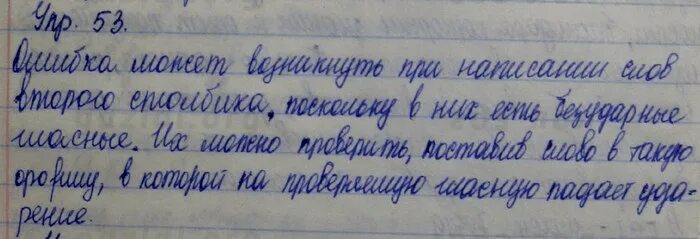 Упр. 53.
Ошибка может возникнуть при написании слов
второго столбика, поскольку в них есть безударные
гласные. Их можно проверить, поставив слово в такую
форму, в которой на проверяемую гласную падает уда-
рение.